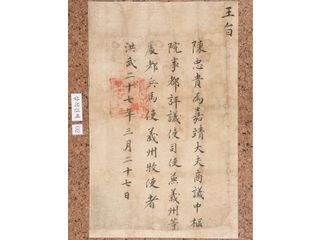 王旨
陳忠貴為嘉靖大夫商議中樞
院事都評議使司使兼義州等
處都兵馬使義州牧使者
洪武二十七年三月二十七日